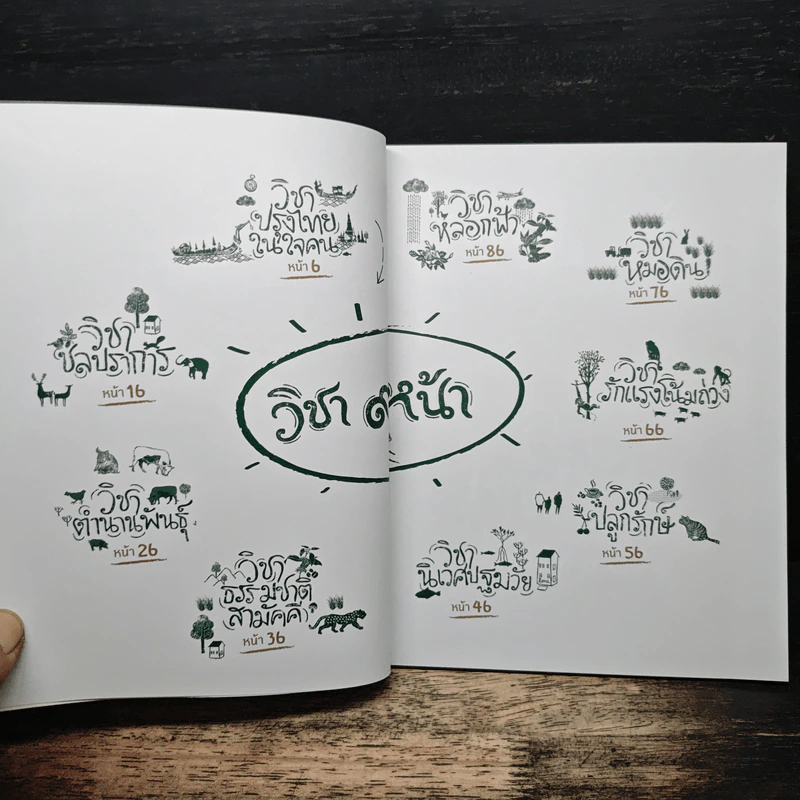 วิชา
ปรุงไทย
ในใจคน
หน้า 6
วิชา
ชลปราการ
หน้า 16
วิชา
ตำนานพันธุ์
หน้า 26
วิชา
ธรรมชาติ
สามัคคี
หน้า 36
วิชา
นิเวศปฐมวัย
หน้า 46
วิชา
ปลูกรักษ์
หน้า 56
วิชา
รักแรงโน้มถ่วง
หน้า 66
วิชา
หมอดิน
หน้า 76
วิชา
หลอกฟ้า
หน้า 86
วิชา ๙ หน้า